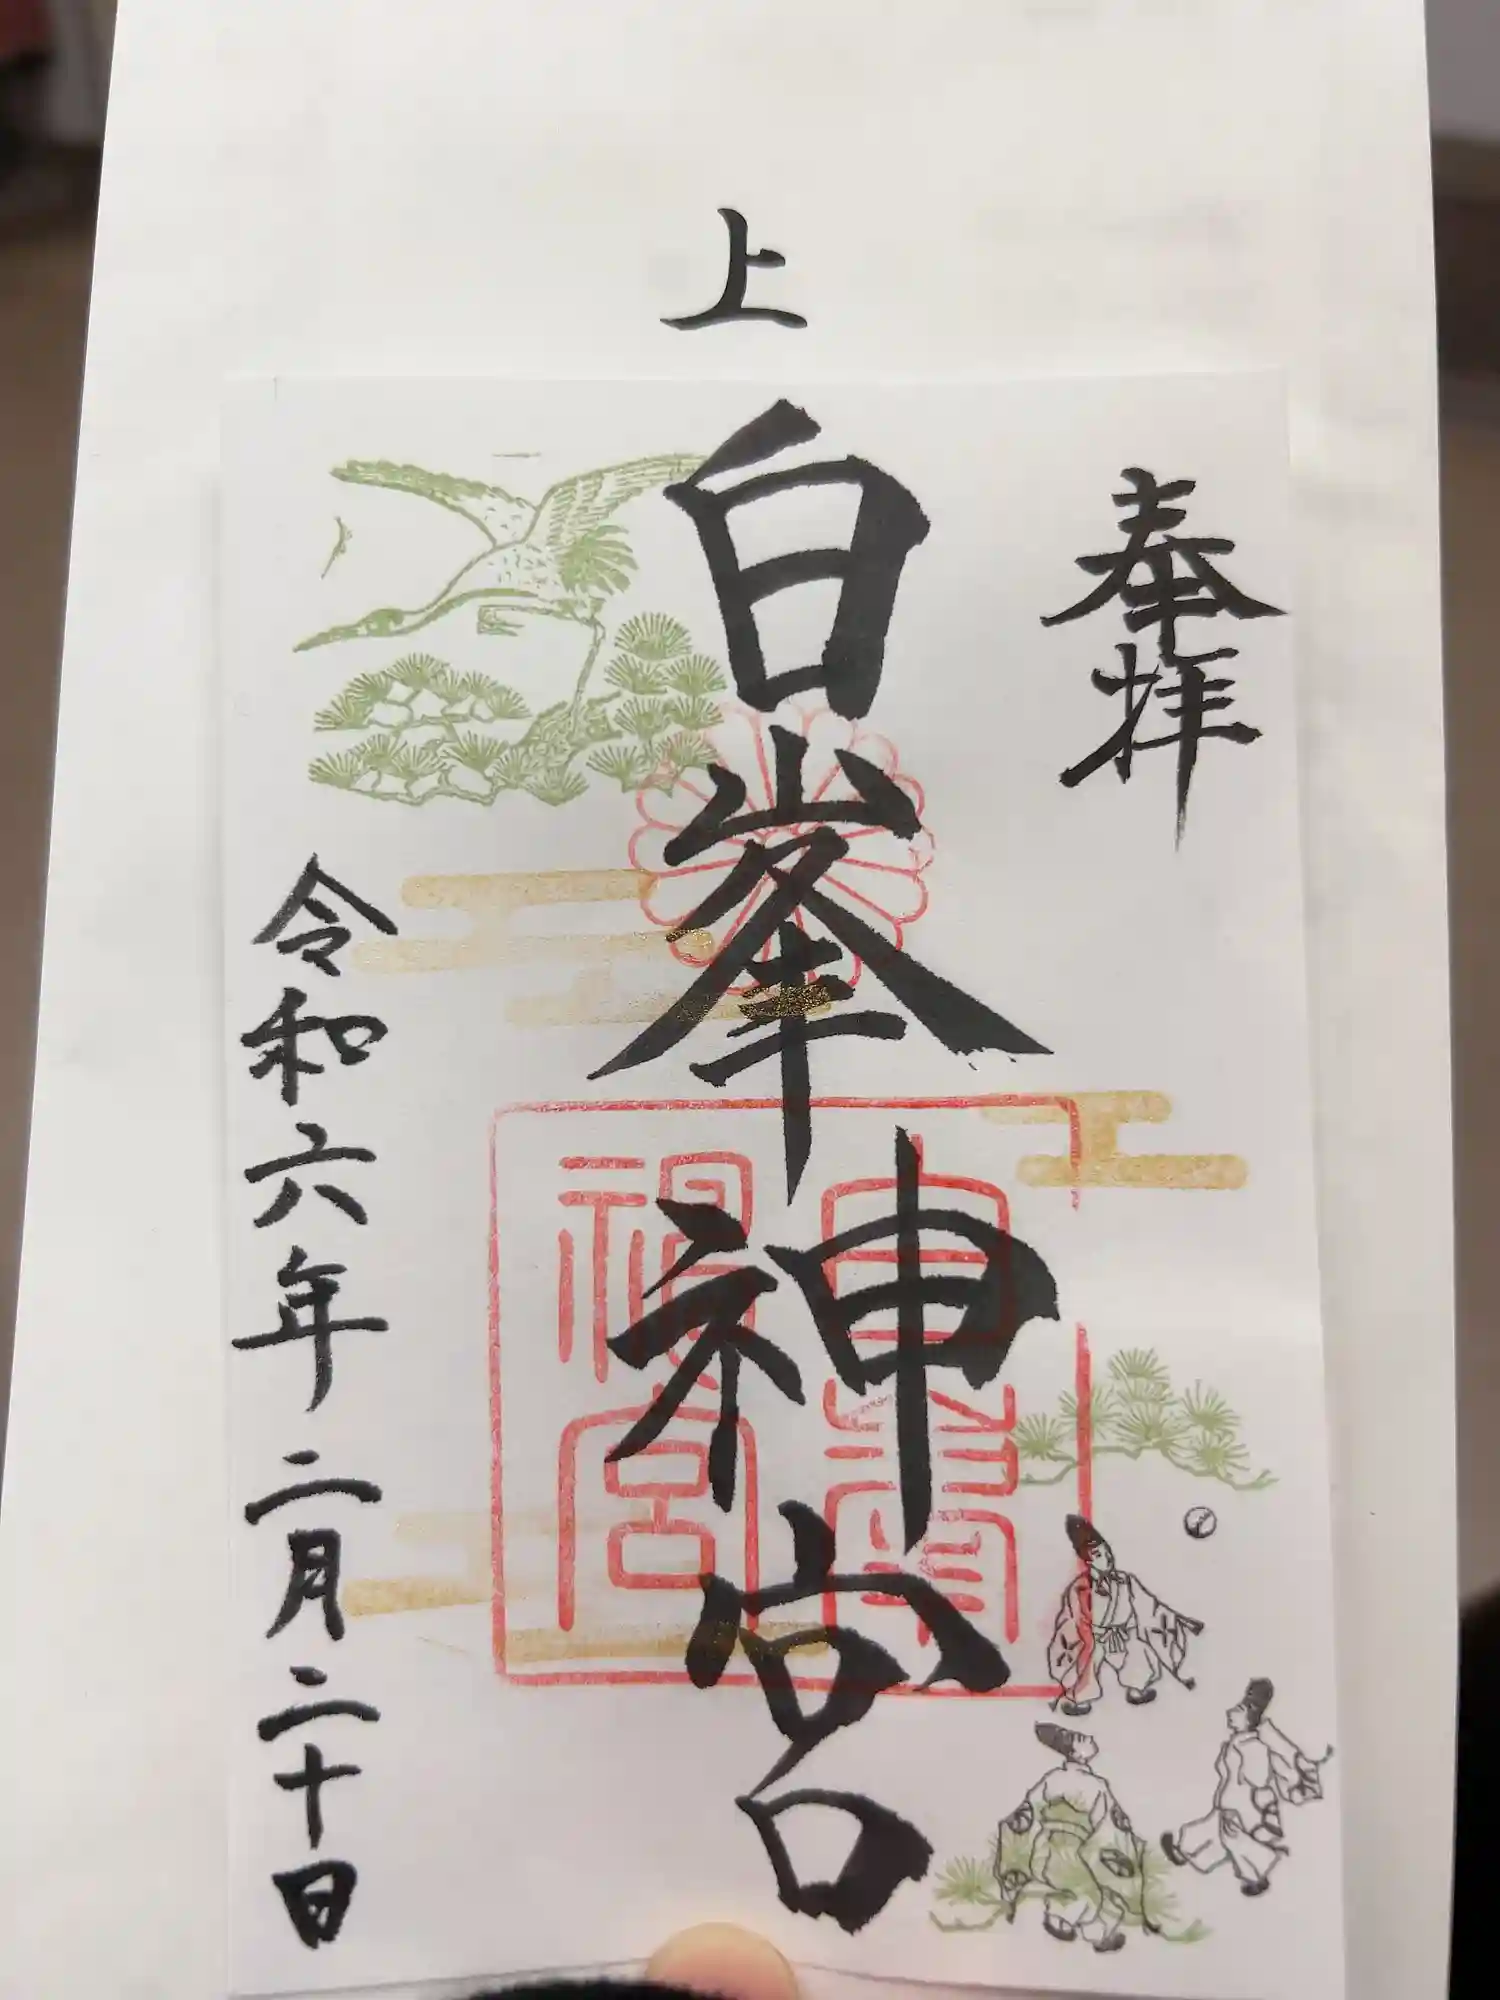 上
奉拝
白峯神宮
令和六年二月二十日
白峯
神宮